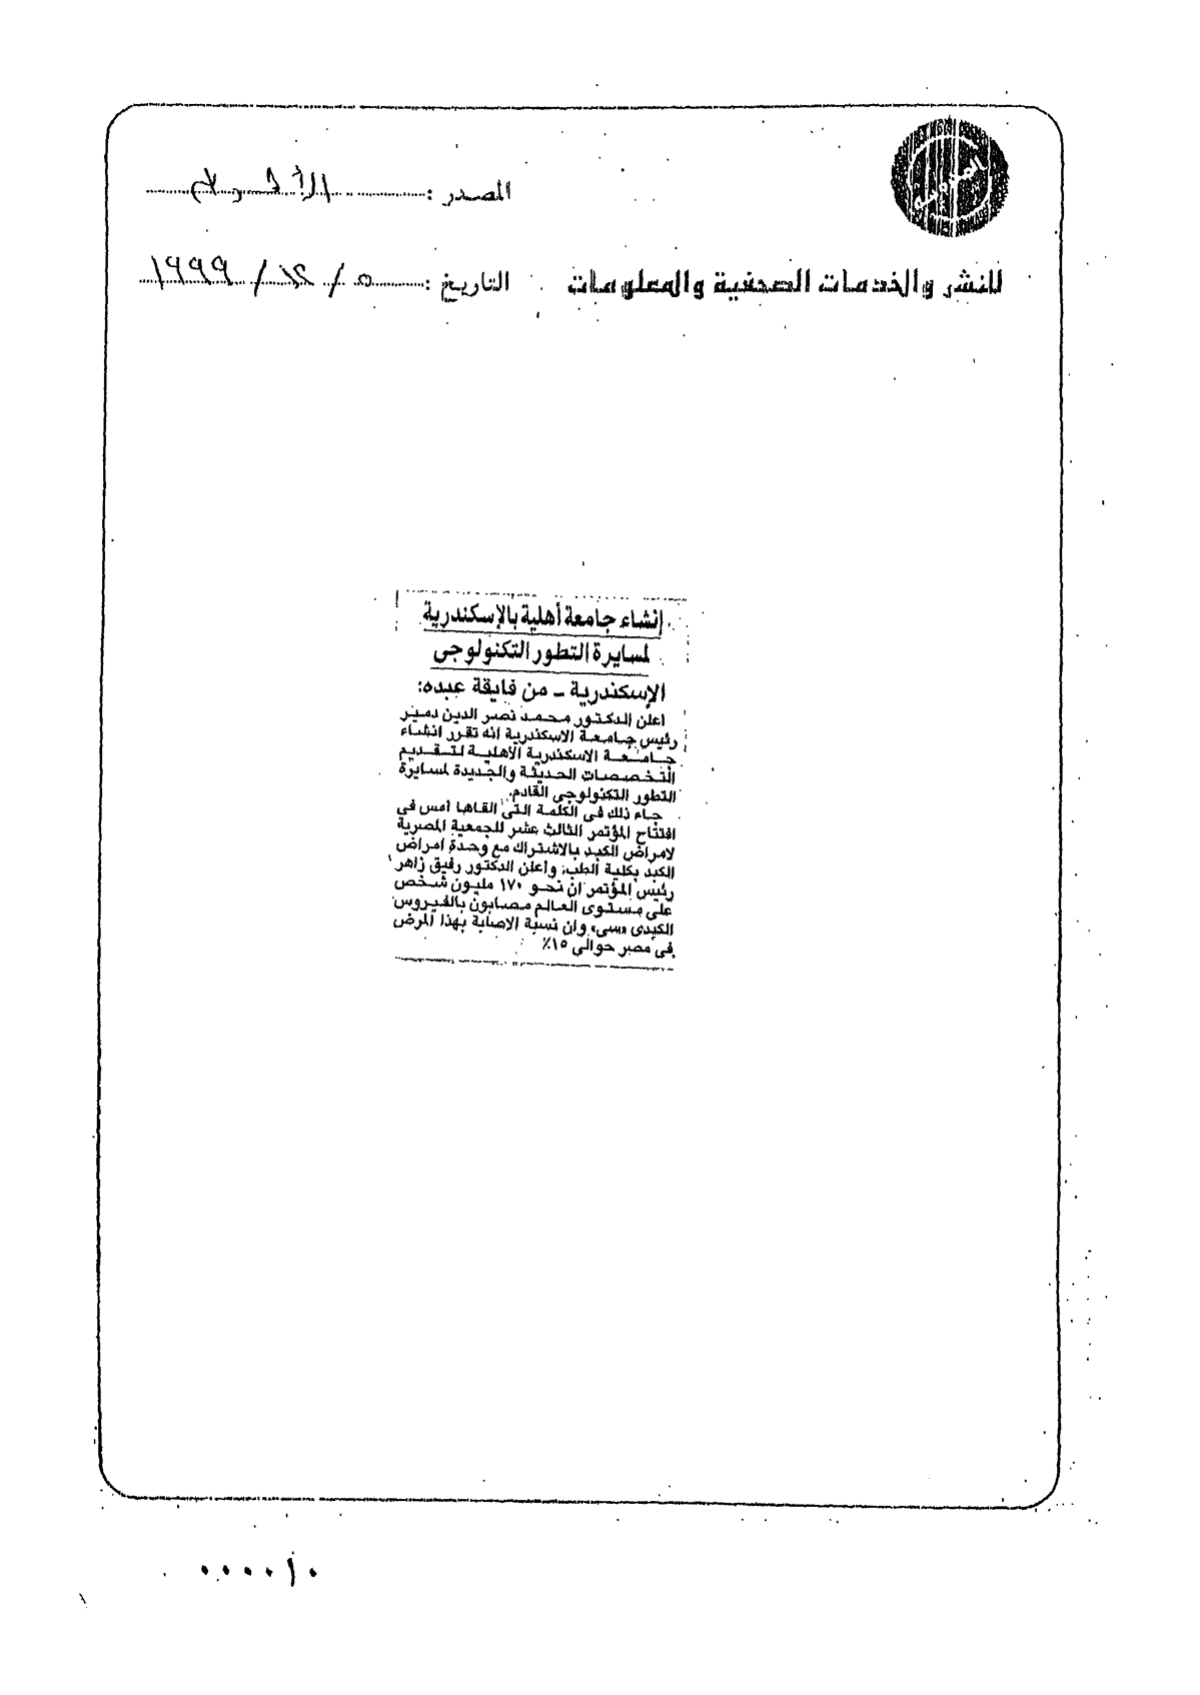 المصدر : الأهرام
للنشر والخدمات الصحفية والمعلومات
التاريخ : ٥ / ١٢ / ١٩٩٩
إنشاء جامعة أهلية بالإسكندرية
لمسايرة التطور التكنولوجى
الإسكندرية - من فايقة عبده:
اعلن الدكتور محمد نصر الدين دمير
رئيس جامعة الاسكندرية انه تقرر انشاء
جامعة الاسكندرية الاهلية لتقديم
التخصصات الحديثة والجديدة لمسايرة
التطور التكنولوجى القادم.
جاء ذلك فى الكلمة التى القاها امس فى
افتتاح المؤتمر الثالث عشر للجمعية المصرية
لامراض الكبد بالاشتراك مع وحدة امراض
الكبد بكلية الطب، واعلن الدكتور رفيق زاهر
رئيس المؤتمر ان نحو ١٧٠ مليون شخص
على مستوى العالم مصابون بالفيروس
الكبدى «سى» وان نسبة الاصابة بهذا المرض
فى مصر حوالى ١٥٪
٠٠٠٠١٠